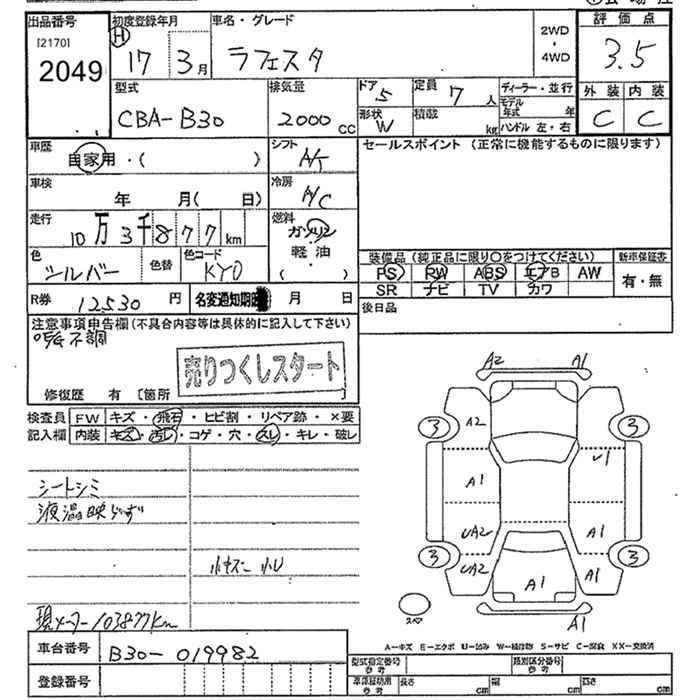 出品番号
[2170]
2049
初度登録年月
H 17年 3月
車名・グレード
ラフェスタ
2WD
・
4WD
評価点
3.5
外装 内装
C C
型式
CBA-B30
排気量
2000 CC
ドア
5
形状
W
定員
7人
積載
kg
ディーラー・並行
モデル年式 年
ハンドル 左・右
車歴
自家用・( )
シフト
A/T
セールスポイント (正常に機能するものに限ります)
車検
年 月( 日)
冷房
A/C
走行
10万3千877km
燃料
ガソリン
軽油
( )
色
シルバー
色替
色コード
KY0
装備品(純正品に限り〇をつけてください)
PS PW ABS エアB AW
SR ナビ TV カワ
新車保証書
有・無
R券 12530円
名変通知期限 月 日
後日品
注意事項申告欄(不具合内容等は具体的に記入して下さい)
不調
売りつくしスタート
修復歴 有 [箇所 ]
検査員
記入欄
FW キズ・飛石・ヒビ割・リペア跡・×要
内装 キズ・汚レ・コゲ・穴・スレ・キレ・破レ
シートシミ
液温映らず
小キズ 小U
現メーター103877Km
A2 A1
A2
3 3
A1
U1
UA2
A1
3 3
UA2
A1
A1
スペア
A1
A-キズ E-エクボ U-凹み W-補修跡 S-サビ C-腐食 XX-交換済
車台番号
B30-019982
登録番号
型式指定番号
参考
類別区分番号
参考
車庫証明用
参考
長さ cm
幅 cm
高さ cm